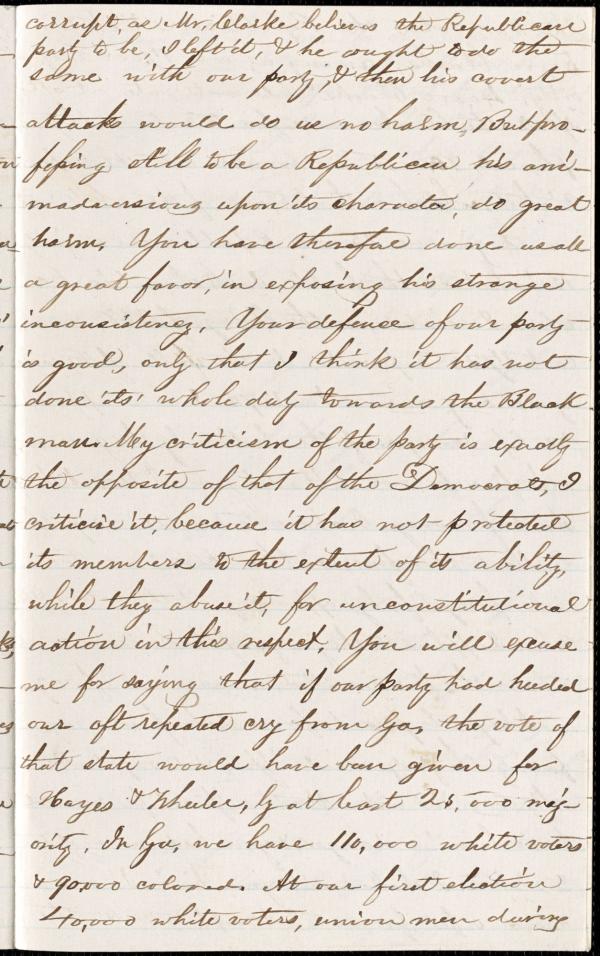 corrupt, as Mr. Clarke believes the Republican
party to be, I left it, & he ought to do the
same with our party, & then his covert
attacks would do us no harm, But pro-
fessing still to be a Republican his ani-
madversions upon its character, do great
harm. You have therefore done us all
a great favor, in exposing his strange
inconsistency. Your defence of our party
is good, only that I think it has not
done its' whole duty towards the Black
man. My criticism of the party is exactly
the opposite of that of the Democrats, I
criticise it, because it has not protected
its members to the extent of its ability,
while they abuse it, for unconstitutional
action in this respect. You will excuse
me for saying that if our party had heeded
our oft repeated cry from Ga, the vote of
that state would have been given for
Hayes & Wheeler, by at least 25,000 maj-
ority. In Ga, we have 110,000 white voters
& 90,000 colored. At our first election
40,000 white voters, union men during